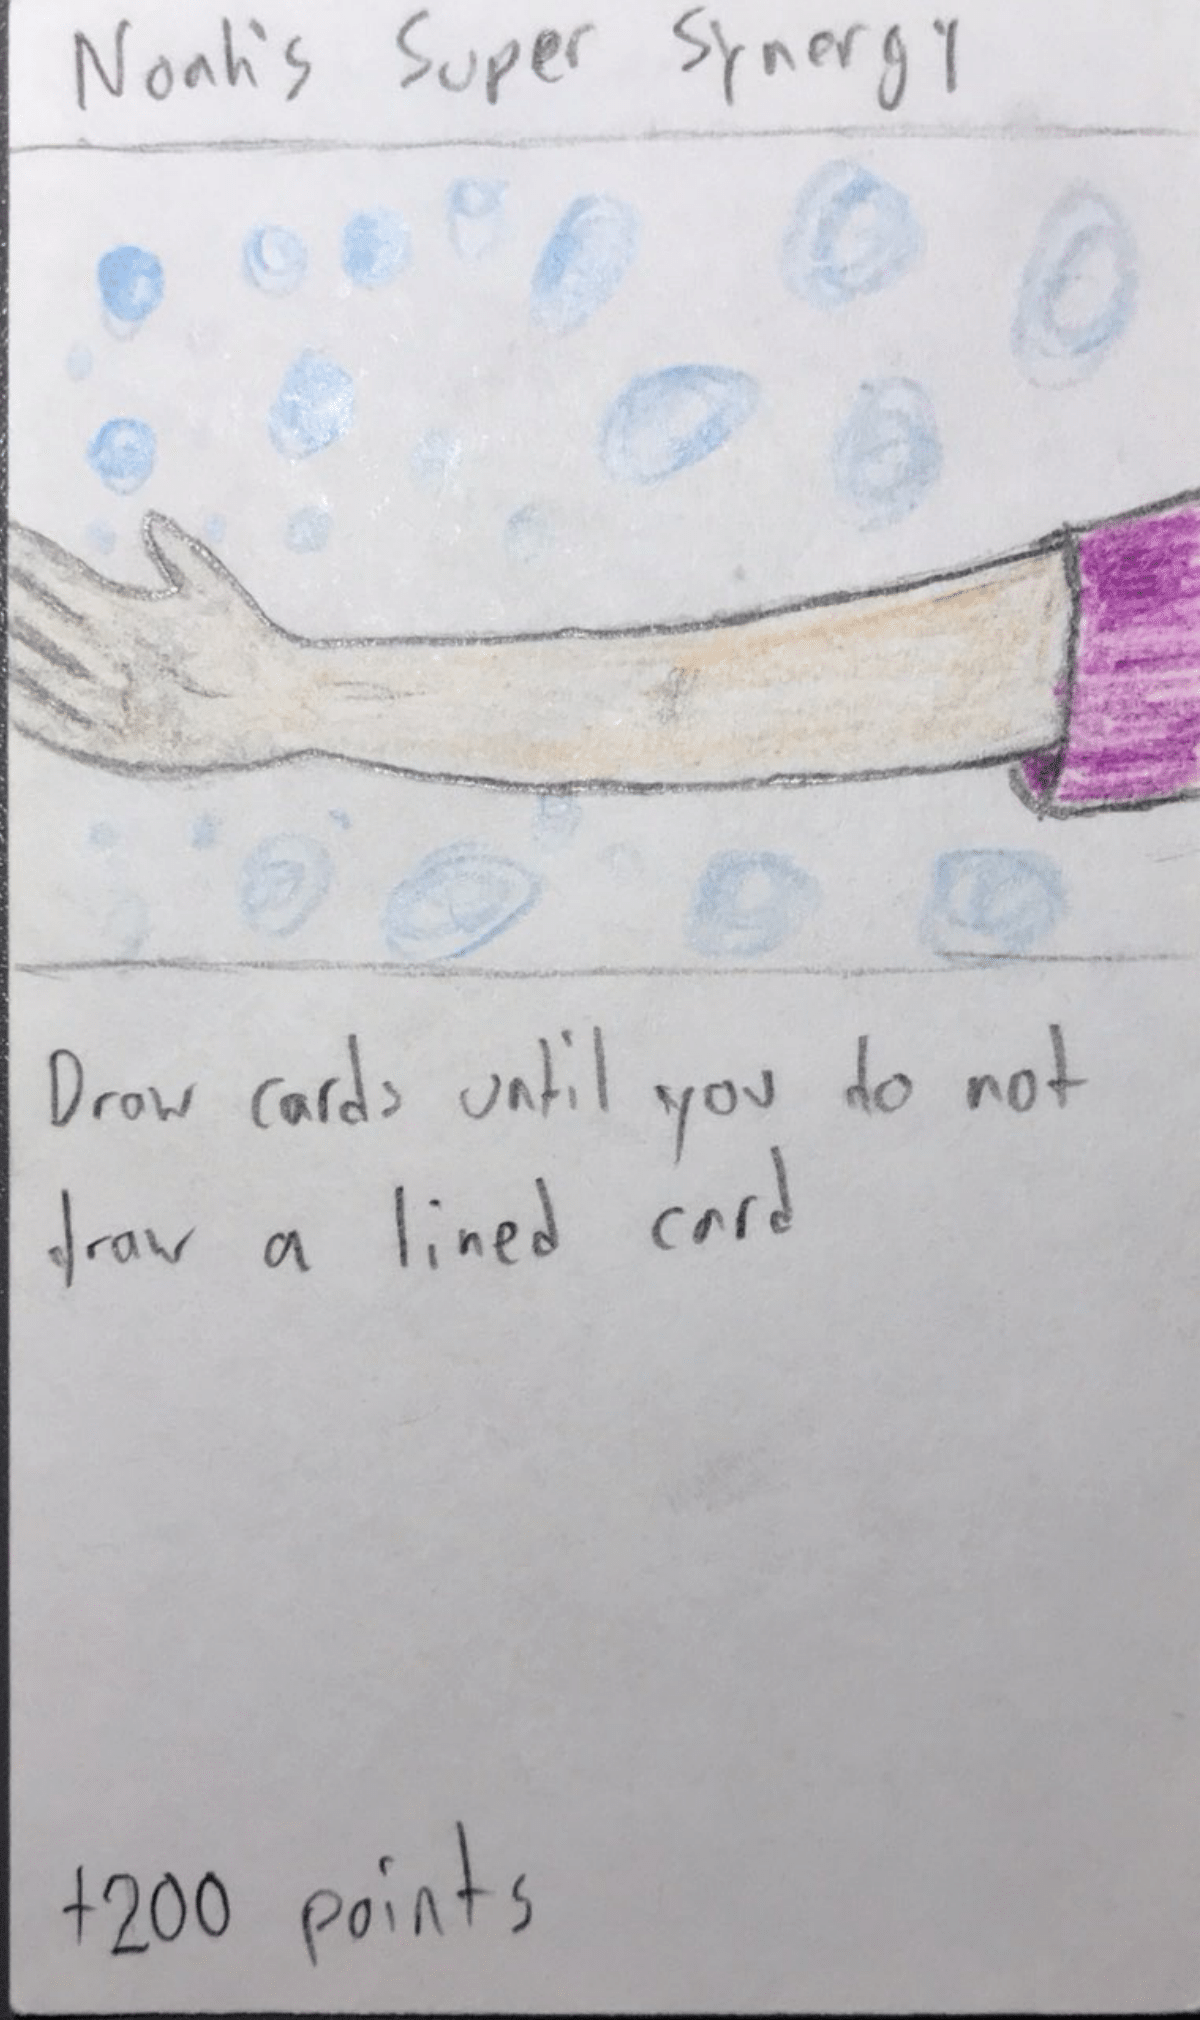 Noah's Super Synergy
Draw cards until you do not
draw a lined card
+200 points